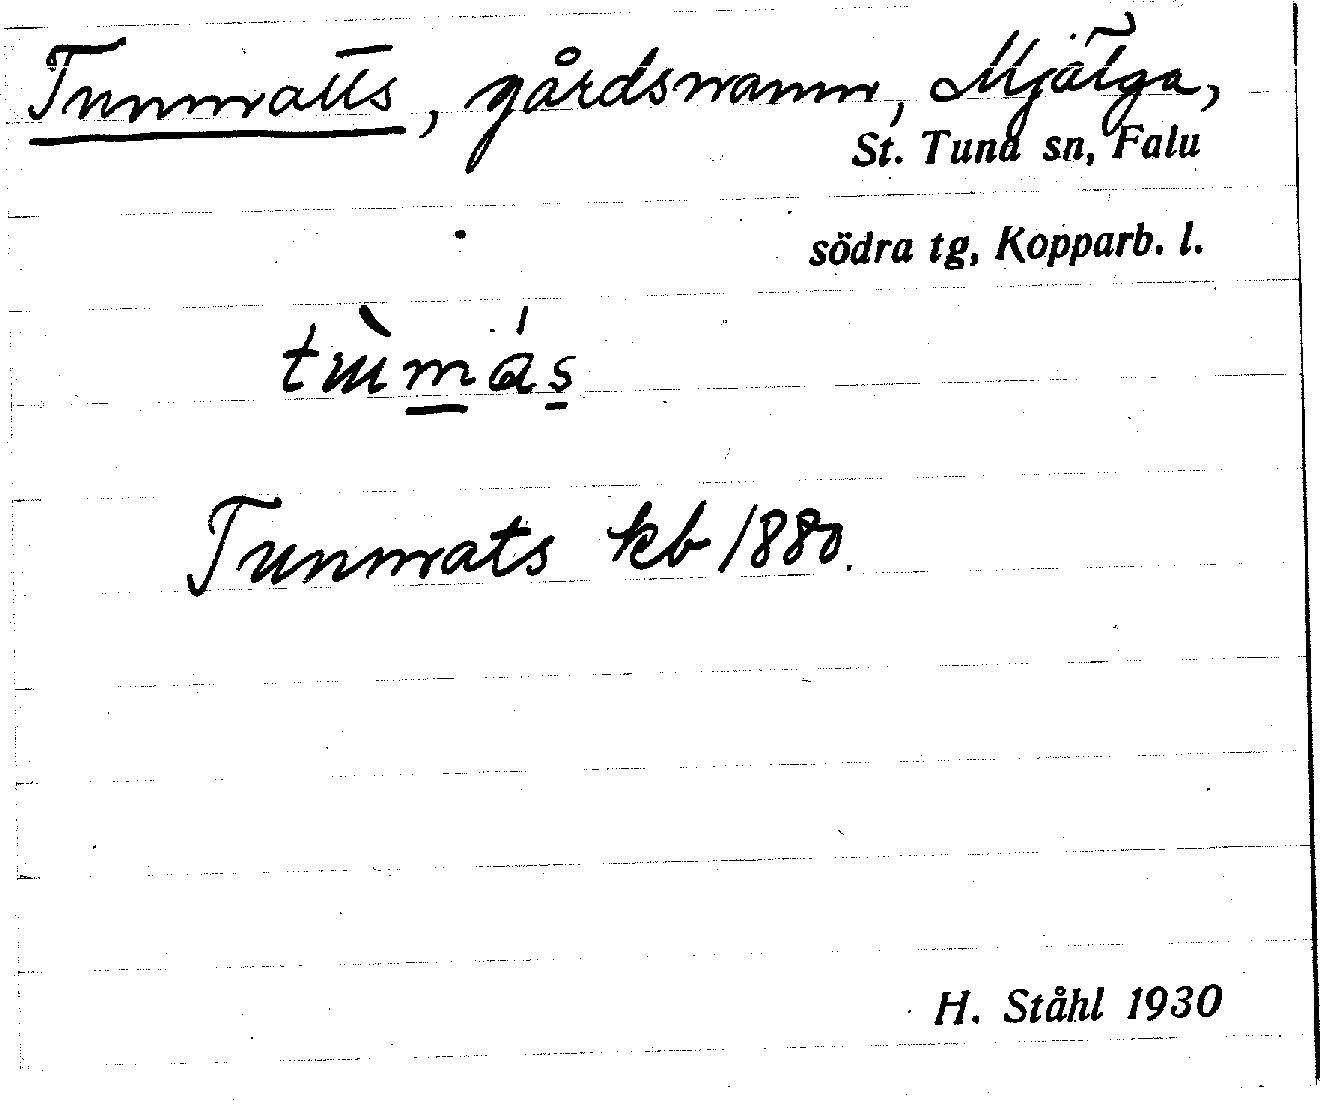 Tunmatts, gårdsnamn, Mjälga,
St. Tuna sn, Falu
södra tg, Kopparb. l.
Tunmats kb 1880.
H. Ståhl 1930